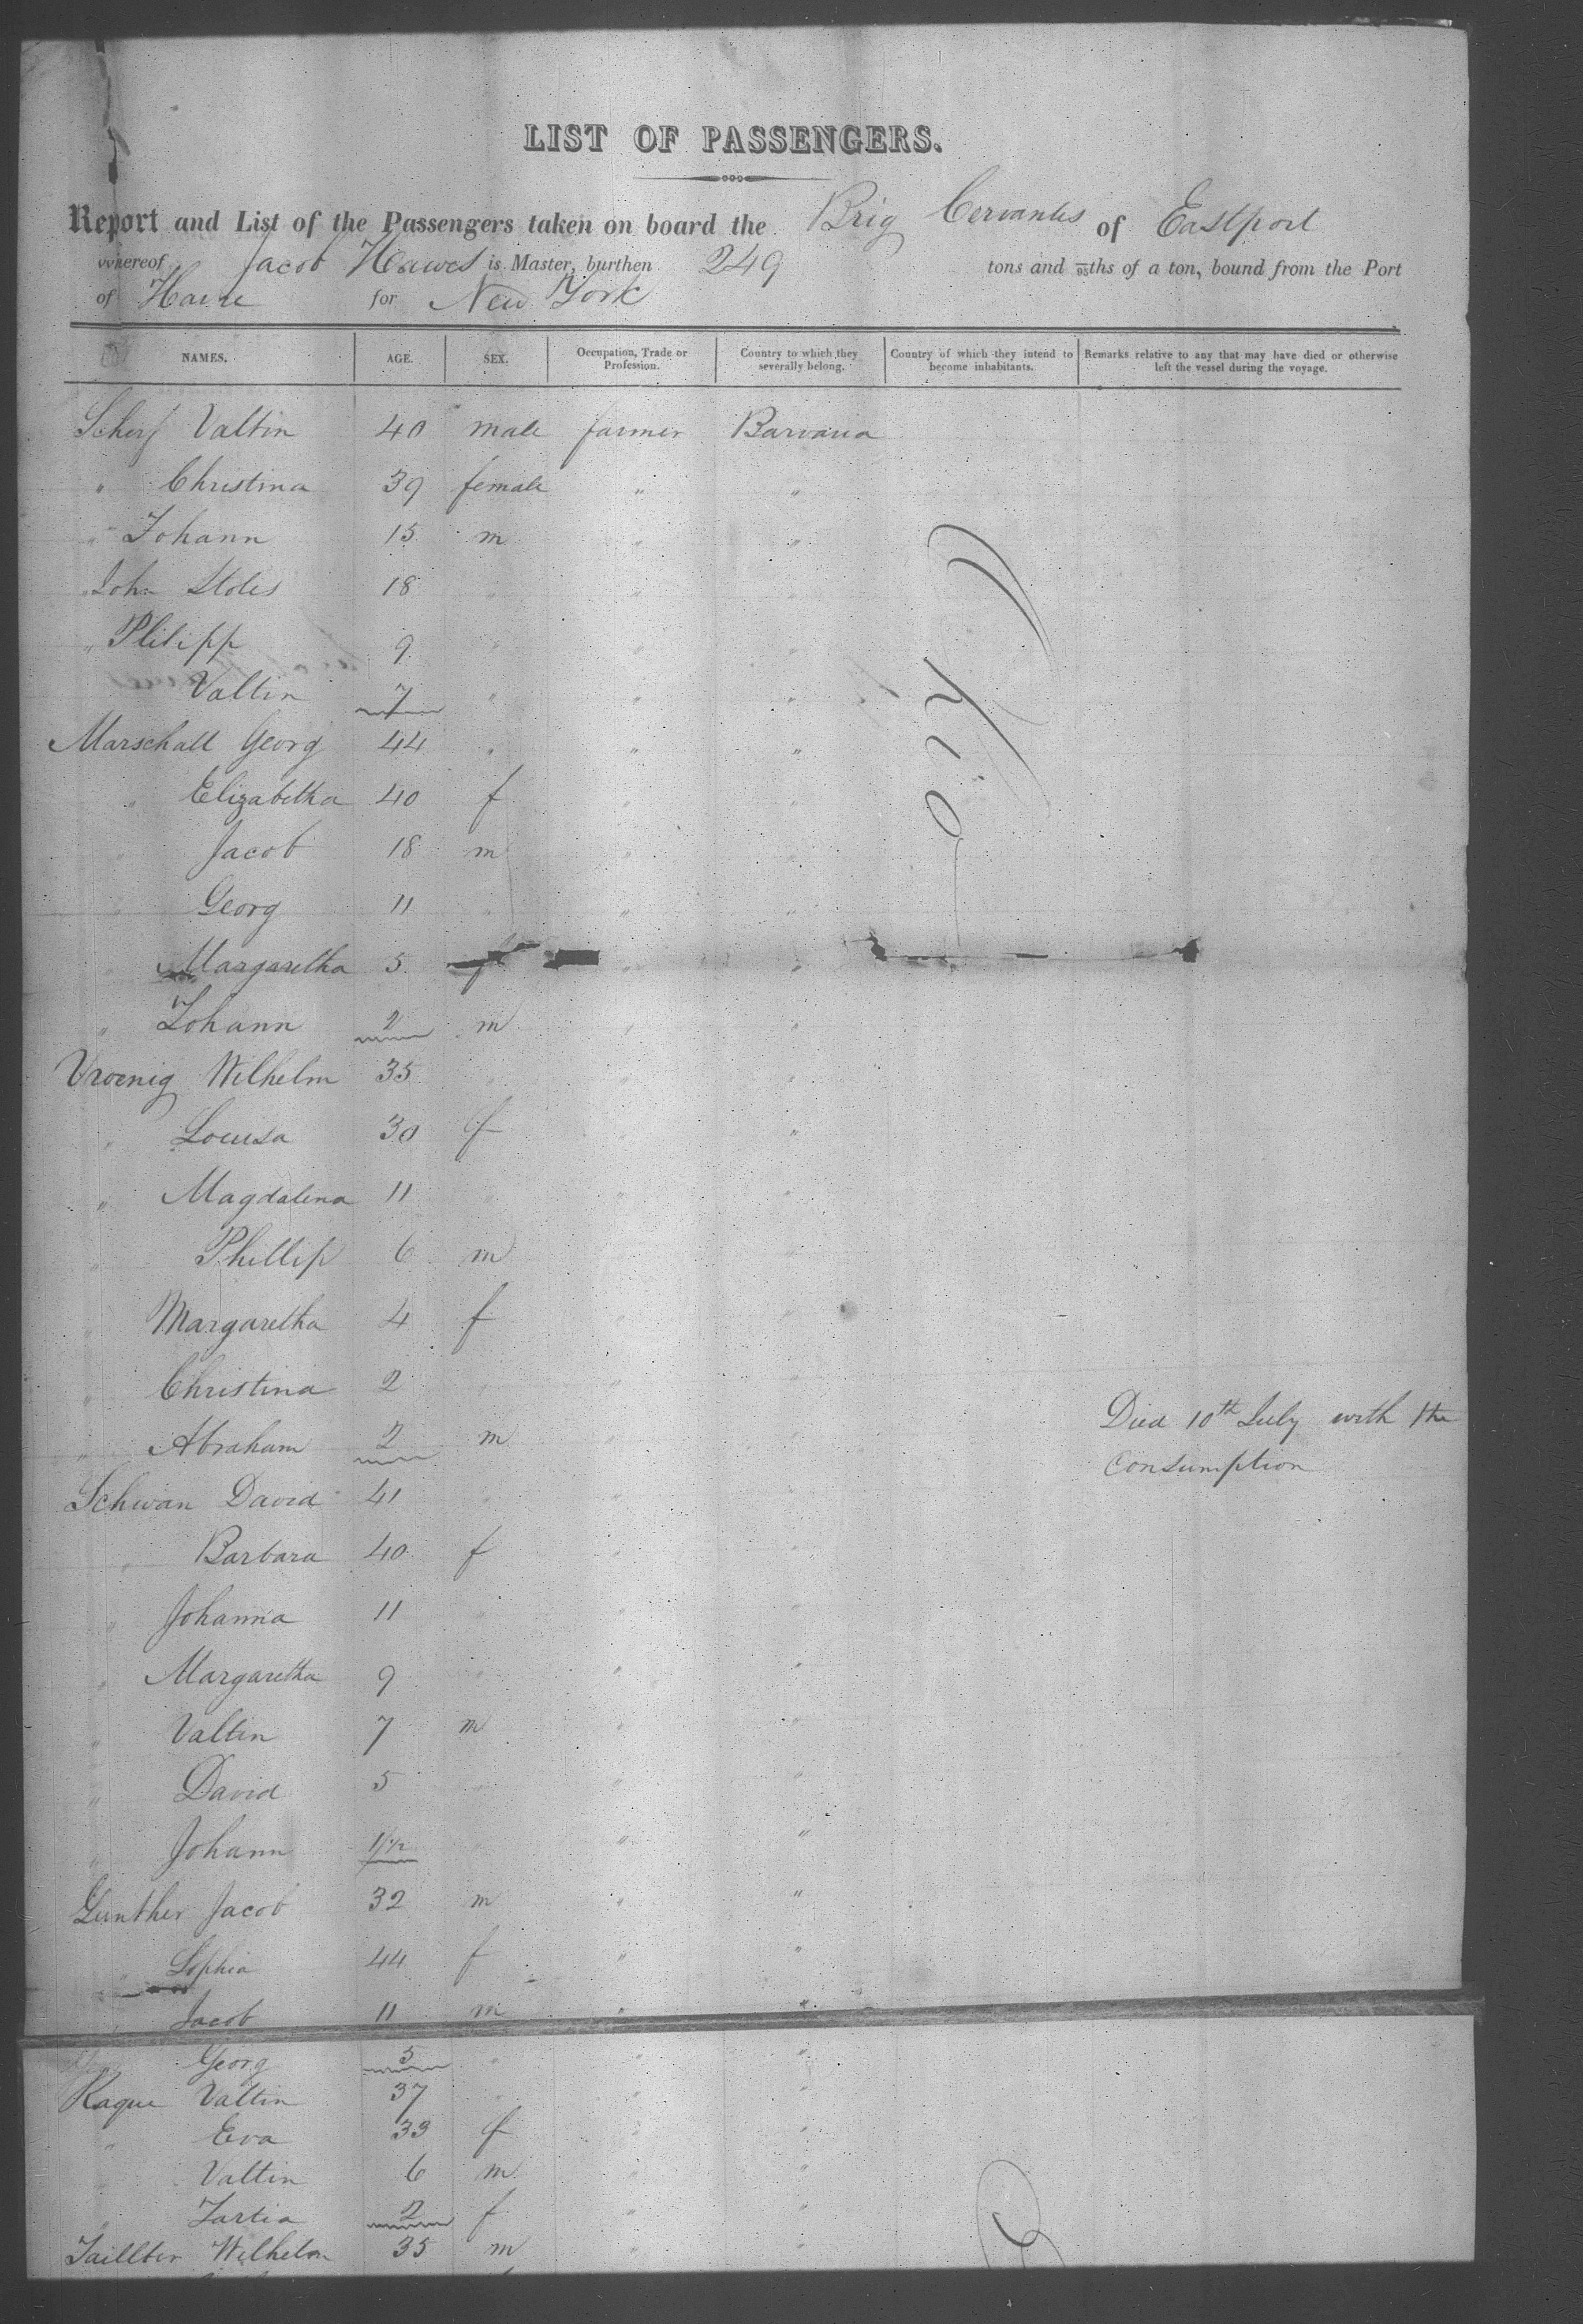 LIST OF PASSENGERS.
Report and List of the Passengers taken on board the Brig Cervantes of Eastport
whereof Jacob Hawes is Master, burthen 249 tons and /95ths of a ton, bound from the Port
of Havre for New York
NAMES. AGE. SEX. Occupation, Trade or Profession. Country to which they severally belong. Country of which they intend to become inhabitants. Remarks relative to any that may have died or otherwise left the vessel during the voyage.
Scherf Valtin 40 male farmer Barvaria
" Christina 39 female " "
" Johann 15 m " "
John 18 " "
" Philipp 9 " "
Valtin 7 " " "
Marschall Georg 44 " " "
" Elizabetha 40 f " "
" Jacob 18 m " "
" Georg 11 " " "
" Margaretha 5 f " "
" Johann 2 m " "
Vroenig Wilhelm 35 " " "
" Louisa 30 f " "
" Magdalena 11 " " "
" Phillip 6 m " "
" Margaretha 4 f " "
" Christina 2 " " "
" Abraham 2 m " " Died 10th July with the
Consumption
Schwan David 41 " " "
" Barbara 40 f " "
" Johanna 11 " " "
" Margaretha 9 " " "
" Valtin 7 m " "
" David 5 " " "
" Johann 1/2 " " "
Gunther Jacob 32 m " "
" Sophia 44 f " "
" Jacob 11 m " "
Georg 5 " " "
Raque Valtin 37 " " "
" Eva 33 f " "
" Valtin 6 m " "
" 2 f " "
Wilhelm 35 m " "
Ohio